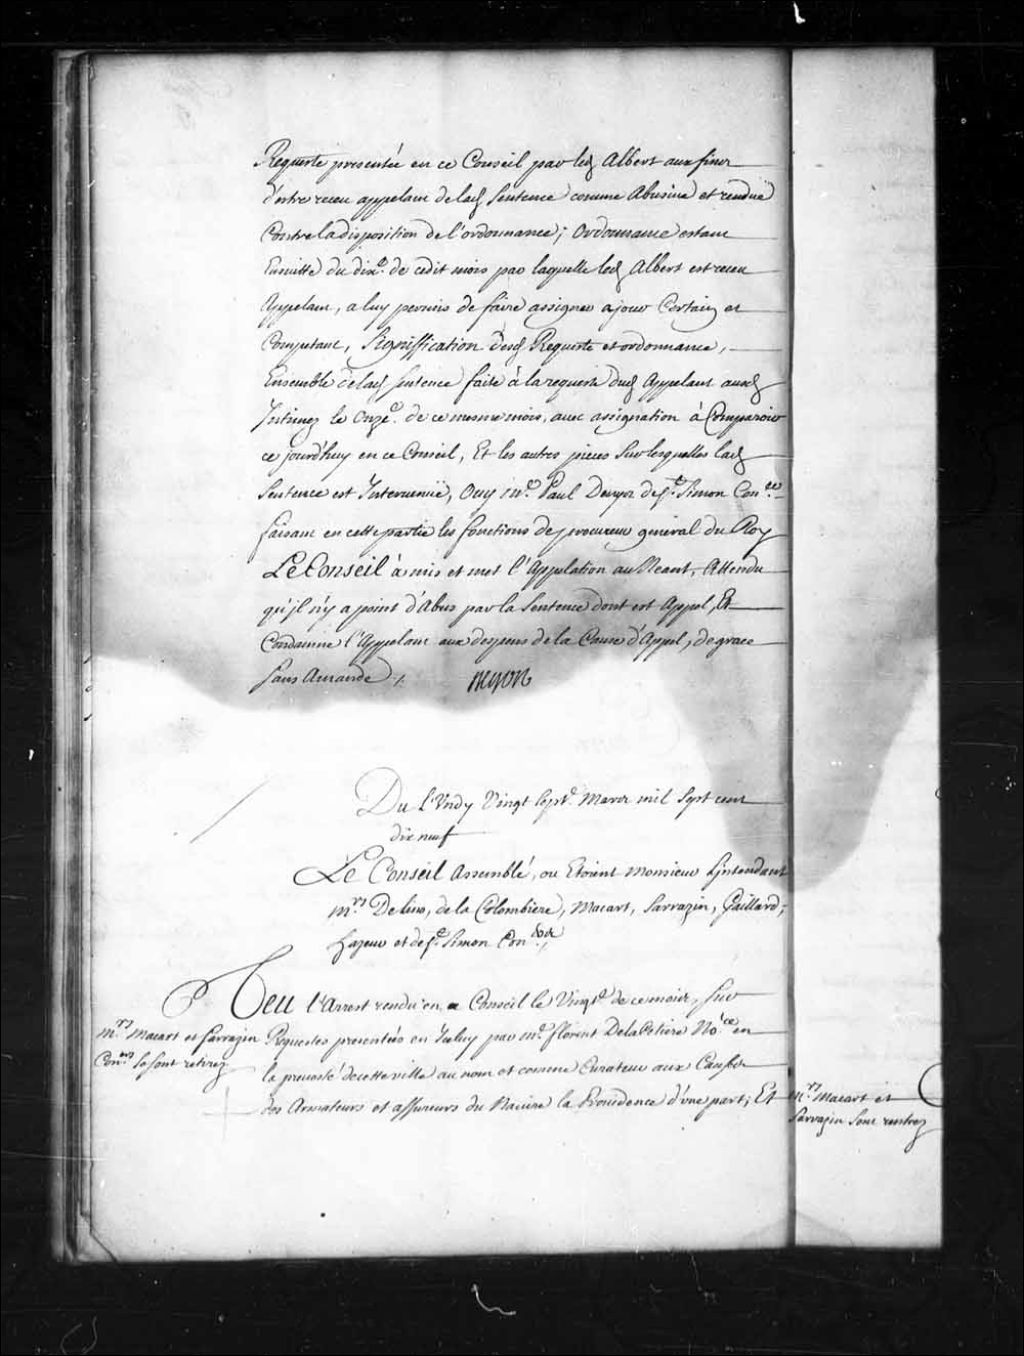 Requeste presentée en ce Conseil par led Albert aux fins
d'estre receu appelant de lad Sentence comme Abusive et rendue
Contre la disposition de l'ordonnance; Ordonnance estant
Ensuitte du dixe. de cedit mois par laquelle led Albert est receu
Appelant, a luy permis de faire assigner a jour Certain et
Competant, Signiffication desd Requeste et ordonnance,
Ensemble de lad Sentence faite à la requeste dud Appelant auxd
Intimez le Onze. de ce mesme mois, avec assignation à Comparoir
ce jourd'huy en ce Conseil, Et les autres pieces Sur lesquelles lad
Sentence est Intervenüe, Ouy Me. Paul Denys de St. Simon Coner.
faisant en cette partie les fonctions de procureur general du Roy
Le Conseil à mis et met l'Appelation au Neant, Attendu
qu'jl n'y a point d'Abus par la Sentence dont est Appel, Et
Condamne l'Appelant aux despens de la Cause d'Appel, de grace
Sans Amande ./. Begon
Du lUndy Vingt Septe. Mars mil Sept cent
dix neuf
Le Conseil Assemblé, ou Etoient Monsieur L'jntendant
Mrs Delino, de la Colombiere, Macart, Sarrazin, Gaillard,
hazeur et de St. Simon Coners,
Veu l'Arrest rendu en ce Conseil le Vingte de ce mois, Sur
Mrs Macart et Sarrazin
Coners Se sont retirez
Requestes presentées en Iceluy par Me. florent Delacetiere Nore en
la prevosté de cette ville au nom et comme Curateur aux Causes
des Armateurs et assureurs du Navire la Providence d'une part; Et
Mrs Macart et
Sarrazin Sont rentrez